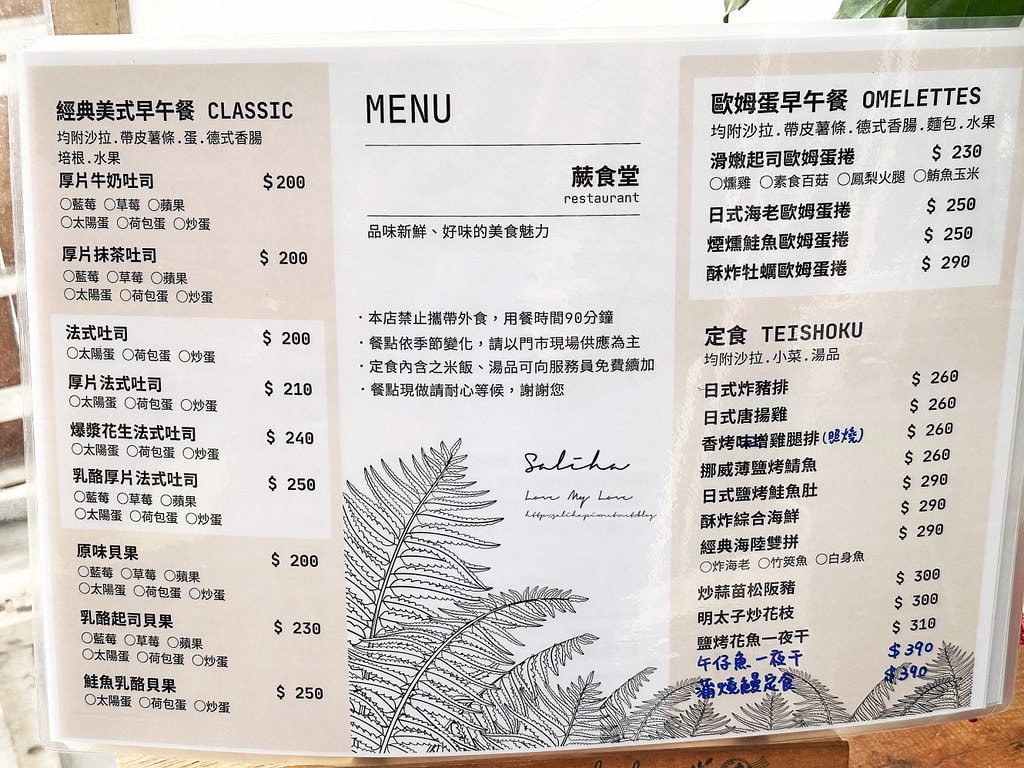 經典美式早午餐 CLASSIC
均附沙拉.帶皮薯條.蛋.德式香腸
培根.水果
厚片牛奶吐司 $200
○藍莓 ○草莓 ○蘋果
○太陽蛋 ○荷包蛋 ○炒蛋
厚片抹茶吐司 $ 200
○藍莓 ○草莓 ○蘋果
○太陽蛋 ○荷包蛋 ○炒蛋
法式吐司 $ 200
○太陽蛋 ○荷包蛋 ○炒蛋
厚片法式吐司 $ 210
○太陽蛋 ○荷包蛋 ○炒蛋
爆漿花生法式吐司 $ 240
○太陽蛋 ○荷包蛋 ○炒蛋
乳酪厚片法式吐司 $ 250
○藍莓 ○草莓 ○蘋果
○太陽蛋 ○荷包蛋 ○炒蛋
原味貝果 $ 200
○藍莓 ○草莓 ○蘋果
○太陽蛋 ○荷包蛋 ○炒蛋
乳酪起司貝果 $ 230
○藍莓 ○草莓 ○蘋果
○太陽蛋 ○荷包蛋 ○炒蛋
鮭魚乳酪貝果 $ 250
○太陽蛋 ○荷包蛋 ○炒蛋
MENU
蕨食堂
restaurant
品味新鮮、好味的美食魅力
·本店禁止攜帶外食，用餐時間90分鐘
·餐點依季節變化，請以門市現場供應為主
·定食內含之米飯、湯品可向服務員免費續加
·餐點現做請耐心等候，謝謝您
Saliha
Love My Love
歐姆蛋早午餐 OMELETTES
均附沙拉.帶皮薯條.德式香腸.麵包.水果
滑嫩起司歐姆蛋捲 $ 230
○燻雞 ○素食百菇 ○鳳梨火腿 ○鮪魚玉米
日式海老歐姆蛋捲 $ 250
煙燻鮭魚歐姆蛋捲 $ 250
酥炸牡蠣歐姆蛋捲 $ 290
定食 TEISHOKU
均附沙拉.小菜.湯品
日式炸豬排 $ 260
日式唐揚雞 $ 260
香烤味增雞腿排(照燒) $ 260
挪威薄鹽烤鯖魚 $ 260
日式鹽烤鮭魚肚 $ 290
酥炸綜合海鮮 $ 290
經典海陸雙拼 $ 290
○炸海老 ○竹筴魚 ○白身魚
炒蒜苗松阪豬 $ 300
明太子炒花枝 $ 300
鹽烤花魚一夜干 $ 310
午仔魚一夜干 $390
蒲燒鰻定食 $390